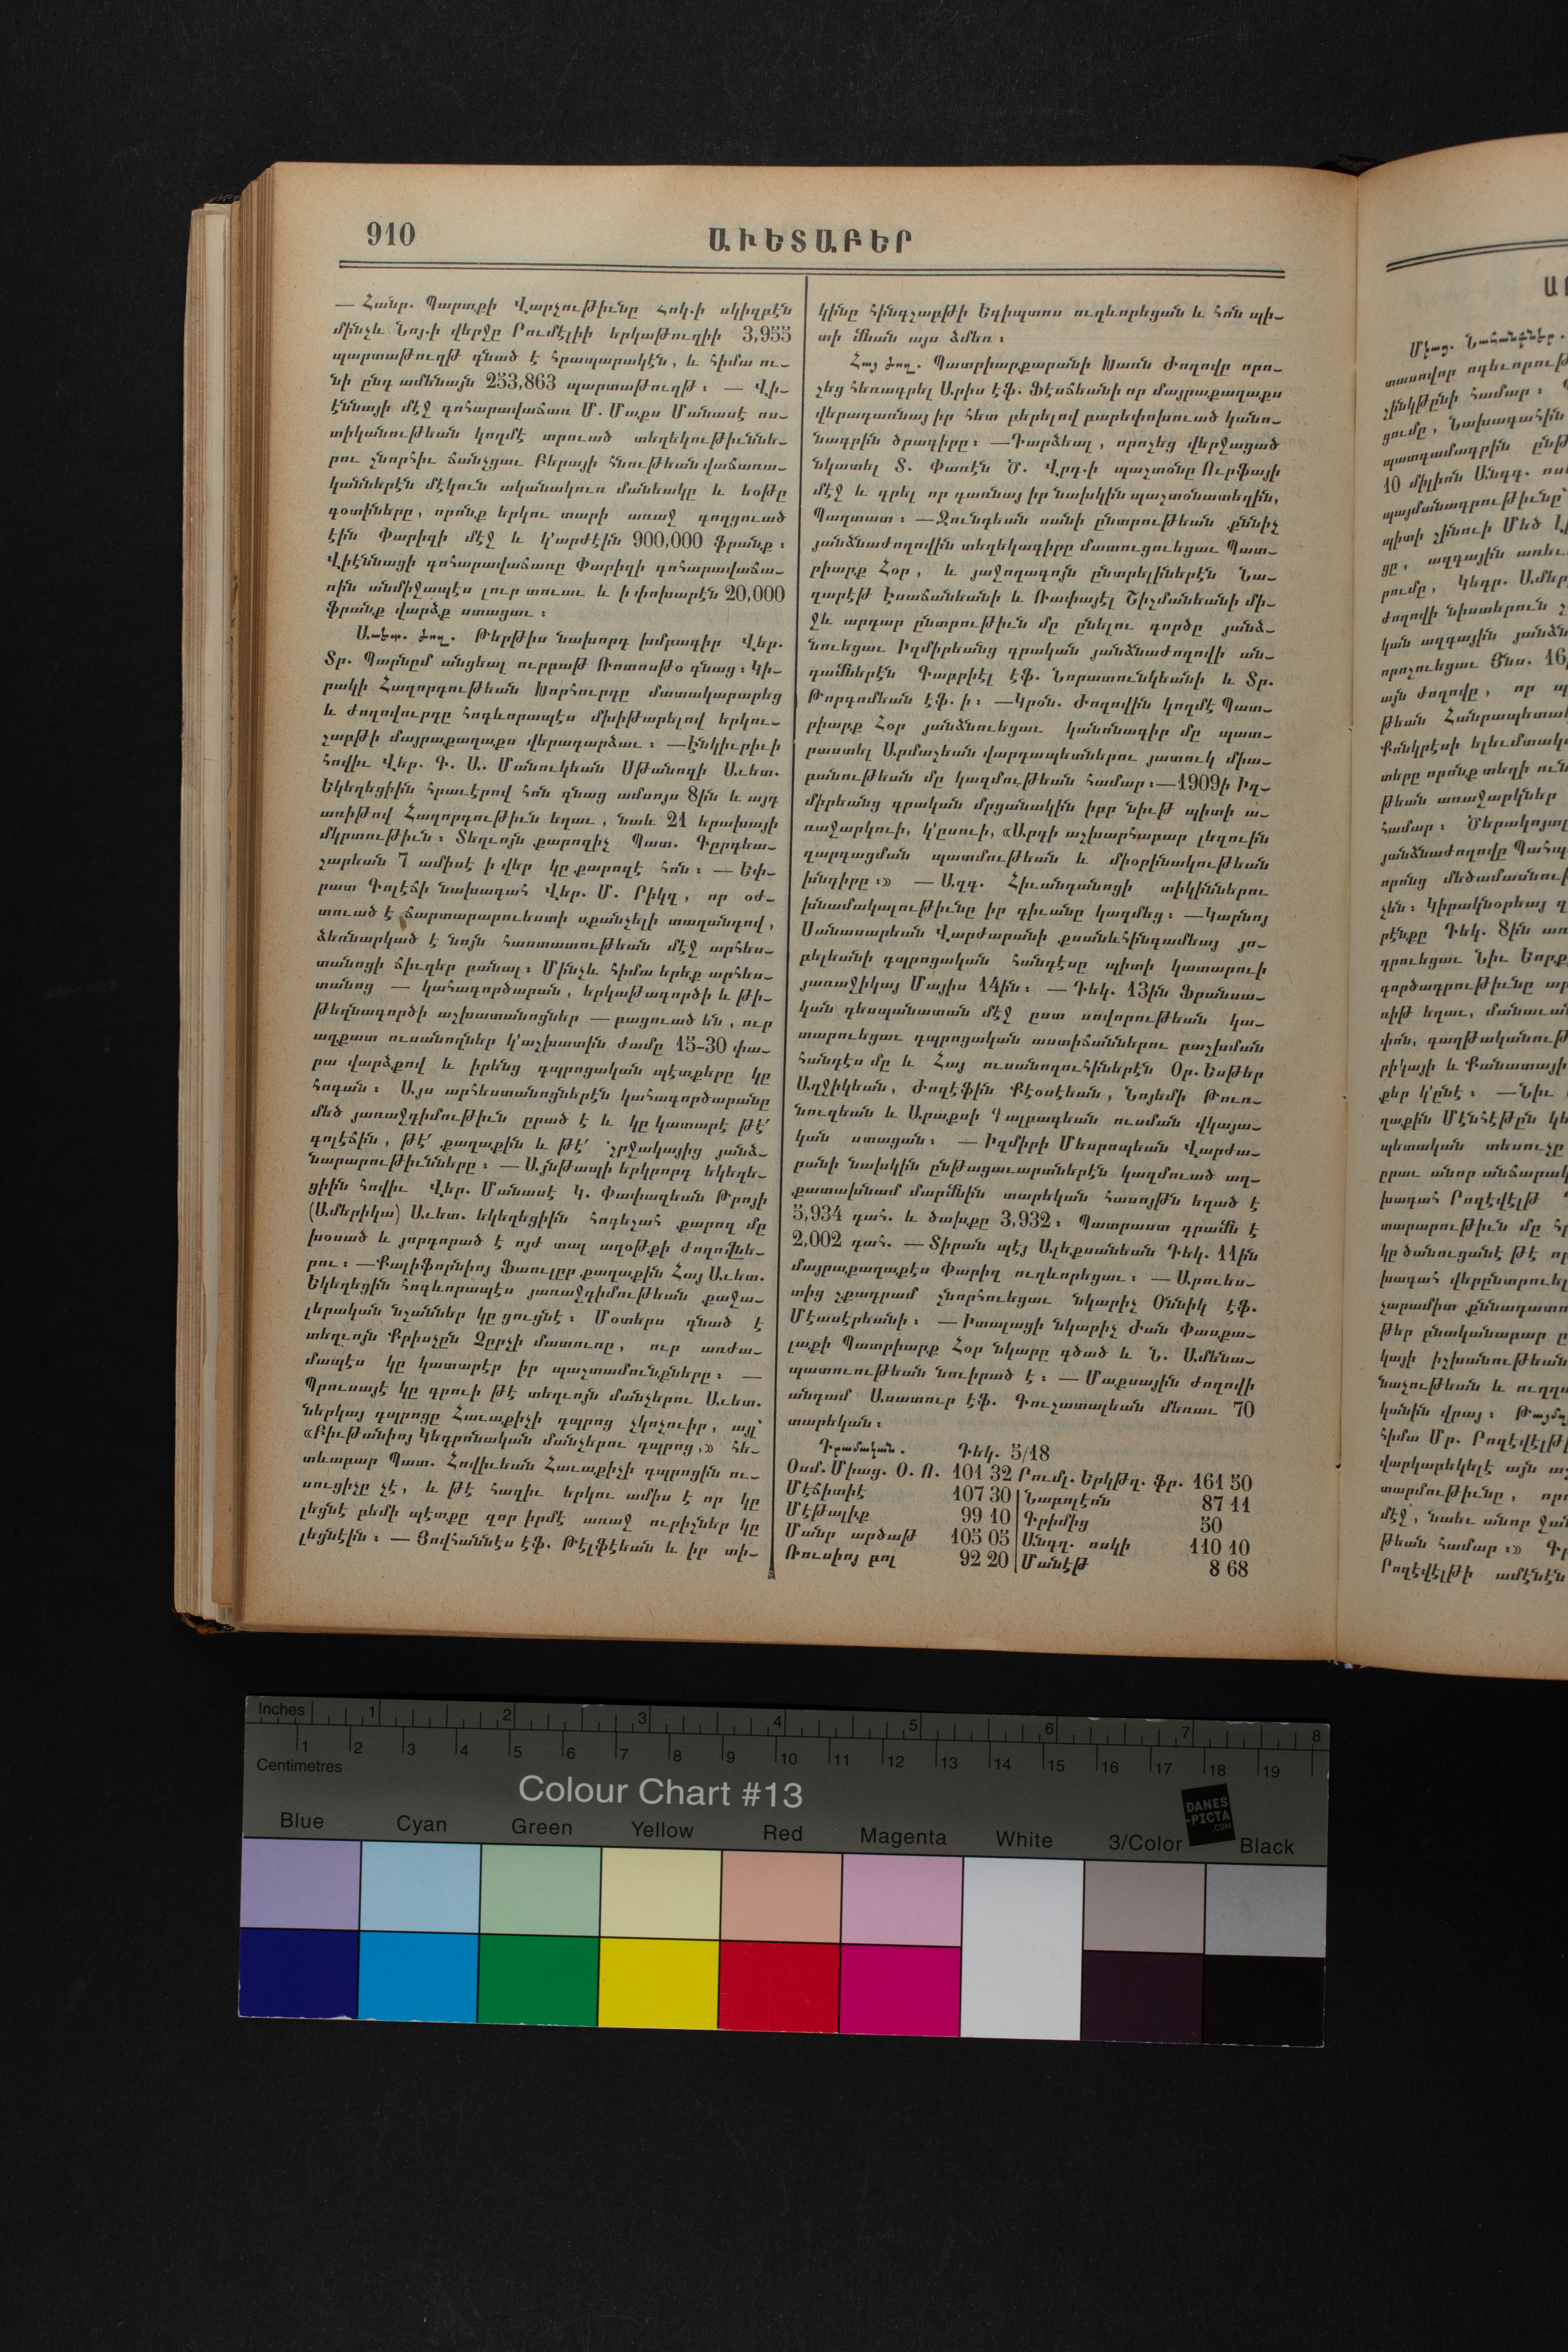 910
ԱՒԵՏԱԲԵՐ
— Հանր. Պարտքի Վարչութիւնը Հոկ.ի սկիզբէն
մինչև Նոյ.ի վերջը Րումէլիի երկաթուղիի 3,955
պարտաթուղթ գնած է հրապարակէն, և հիմա ու-
նի ընդ ամենայն 253,863 պարտաթուղթ: — Վի-
էննայի մէջ գոհարավաճառ Մ. Մաքս Մանասէ ոս-
տիկանութեան կողմէ տրուած տեղեկութիւննե-
րու շնորհիւ ճանչցաւ Բերայի հնութեան վաճառա-
կաններէն մէկուն ակնակուռ մանեակը և եօթը
գօտիները, որոնք երկու տարի առաջ գողցուած
էին Փարիզի մէջ և կ'արժէին 900,000 ֆրանք:
Վիէննացի գոհարավաճառը Փարիզի գոհարավաճա-
ռին անմիջապէս լուր տուաւ և ի փոխարէն 20,000
ֆրանք վարձք ստացաւ:
Աւետ. ժող. Թերթիս նախորդ խմբագիր Վեր.
Տր. Պարնըմ անցեալ ուրբաթ Ռոտոսթօ գնաց: Կի-
րակի Հաղորդութեան Խորհուրդը մատակարարեց
և ժողովուրդը հոգևորապէս մխիթարելով երկու-
շաբթի մայրաքաղաքս վերադարձաւ: — Էնկիւրիւի
հովիւ Վեր. Գ. Ա. Մանուկեան Սթանոզի Աւետ.
Եկեղեցիին հրաւէրով հոն գնաց ամսոյս 8ին և այդ
առիթով Հաղորդութիւն եղաւ, նաև 21 երախայի
մկրտութիւն: Տեղւոյն քարոզիչ Պատ. Գըրդեա-
շարեան 7 ամիսէ ի վեր կը քարոզէ հոն: — Եփ-
րատ Գոլէճի նախագահ Վեր. Մ. Րիկզ, որ օժ-
տուած է ճարտարարուեստի սքանչելի տաղանդով,
ձեռնարկած է նոյն հաստատութեան մէջ արհես-
տանոցի ճիւղեր բանալ: Մինչև հիմա երեք արհես-
տանոց — կահագործարան, երկաթագործի և թի-
թեղնագործի աշխատանոցներ — բացուած են, ուր
աղքատ ուսանողներ կ'աշխատին ժամը 15-30 փա-
րա վարձքով և իրենց դպրոցական պէտքերը կը
հոգան: Այս արհեստանոցներէն կահագործարանը
մեծ յառաջդիմութիւն ըրած է և կը կատարէ թէ՛
գոլէճին, թէ՛ քաղաքին և թէ՛ շրջակայից յանձ-
նարարութիւնները: — Այնթապի երկրորդ եկեղե-
ցիին հովիւ Վեր. Մանասէ Կ. Փափազեան Թրոյի
(Ամերիկա) Աւետ. եկեղեցիին հոգեշահ քարոզ մը
խօսած և յորդորած է ոյժ տալ աղօթքի ժողովնե-
րու: — Քալիֆորնիոյ Ֆաուլըր քաղաքին Հայ Աւետ.
Եկեղեցին հոգևորապէս յառաջդիմութեան քաջա-
լերական նշաններ կը ցուցնէ: Մօտերս գնած է
տեղւոյն Քրիսչըն Չըրչի մատուռը, ուր առժա-
մապէս կը կատարէր իր պաշտամունքները: —
Պրուսայէ կը գրուի թէ տեղւոյն մանչերու Աւետ.
ներկայ դպրոցը Հաւաքիչի դպրոց չկոչուիր, այլ՝
«Բիւթանիոյ Կեդրոնական մանչերու դպրոց,» հե-
տևաբար Պատ. Հովիւեան Հաւաքիչի դպրոցին ու-
սուցիչը չէ, և թէ հազիւ երկու ամիս է որ կը
լեցնէ բեմի պէտքը զոր իրմէ առաջ ուրիշներ կը
լեցնէին: — Յովհաննէս էֆ. Թէլֆէեան և իր տի-
կինը հինգշաբթի Եգիպտոս ուղևորեցան և հոն պի-
տի մնան այս ձմեռ:
Հայ ժող. Պատրիարքարանի Խառն Ժողովը որո-
շեց հեռագրել Արիս էֆ. Ֆէսճեանի որ մայրաքաղաքս
վերադառնայ իր հետ բերելով բարեփոխուած կանո-
նագրին ծրագիրը: — Դարձեալ, որոշեց վերջացած
նկատել Տ. Փառէն Ծ. Վրդ.ի պաշտօնը Ուրֆայի
մէջ և գրել որ դառնայ իր նախկին պաշտօնատեղին,
Պաղտատ: — Զունդեան սանի ընտրութեան քննիչ
յանձնաժողովին տեղեկագիրը մատուցուեցաւ Պատ-
րիարք Հօր, և յաջողագոյն ընտրելիներէն Նա-
զարէթ Էսաճանեանի և Ռափայէլ Շիշմանեանի մի-
ջև արդար ընտրութիւն մը ընելու գործը յանձ-
նուեցաւ Իզմիրեանց գրական յանձնաժողովի ան-
դամներէն Գաբրիէլ էֆ. Նորատունկեանի և Տր.
Թորգոմեան էֆ.ի: — Կրօն. Ժողովին կողմէ Պատ-
րիարք Հօր յանձնուեցաւ կանոնագիր մը պատ-
րաստել Արմաշեան վարդապետներու յատուկ միա-
բանութեան մը կազմութեան համար: — 1909ի Իզ-
միրեանց գրական մրցանակին իբր նիւթ պիտի ա-
ռաջարկուի, կ'ըսուի, «Արդի աշխարհաբար լեզուին
զարգացման պատմութեան և միօրինակութեան
խնդիրը:» — Ազգ. Հիւանդանոցի տիկիններու
խնամակալութիւնը իր դիւանը կազմեց: — Կարնոյ
Սանասարեան Վարժարանի քսանևհինգամեայ յո-
բելեանի դպրոցական հանդէսը պիտի կատարուի
յառաջիկայ Մայիս 14ին: — Դեկ. 13ին Ֆրանսա-
կան դեսպանատան մէջ ըստ սովորութեան կա-
տարուեցաւ դպրոցական աստիճաններու բաշխման
հանդէս մը և Հայ ուսանողուհիներէն Օր. Եսթեր
Աղջիկեան, Ժոզէֆին Քէօսէեան, Նոյեմի Թուռ-
նուզեան և Արաքսի Գալբագեան ուսման վկայա-
կան ստացան: — Իզմիրի Մեսրոպեան Վարժա-
րանի նախկին ընթացաւարտներէն կազմուած աղ-
քատախնամ մարմնին տարեկան հասոյթն եղած է
5,934 դահ. և ծախքը 3,932: Պատրաստ դրամն է
2,002 դահ. — Տիրան պէյ Ալեքսանեան Դեկ. 11ին
մայրաքաղաքէս Փարիզ ուղևորեցաւ: — Արուես-
տից շքադրամ շնորհուեցաւ նկարիչ Օննիկ էֆ.
Մէասէրեանի: — Իտալացի նկարիչ Ժան Փասքա-
լաքի Պատրիարք Հօր նկարը գծած և Ն. Ամենա-
պատուութեան նուիրած է: — Մաքսային Ժողովի
անդամ Ասատուր էֆ. Գուշատալեան մեռաւ 70
տարեկան:
Դրամական. Դեկ. 5/18
Օսմ. Միաց. Օ. Ռ. 101 32 Րումլ. Երկթղ. ֆր. 161 50
Մէճիտիէ 107 30 Նաբոլէոն 87 11
Մէթալիք 99 10 Գրիմից 50
Մանր արծաթ 105 05 Անգղ. ոսկի 110 10
Ռուսիոյ րոլ 92 20 Մանէթ 8 68
Inches 1 2 3 4 5 6 7 8
1 2 3 4 5 6 7 8 9 10 11 12 13 14 15 16 17 18 19
Centimetres
Colour Chart #13
DANES
-PICTA
.COM
Blue Cyan Green Yellow Red Magenta White 3/Color Black